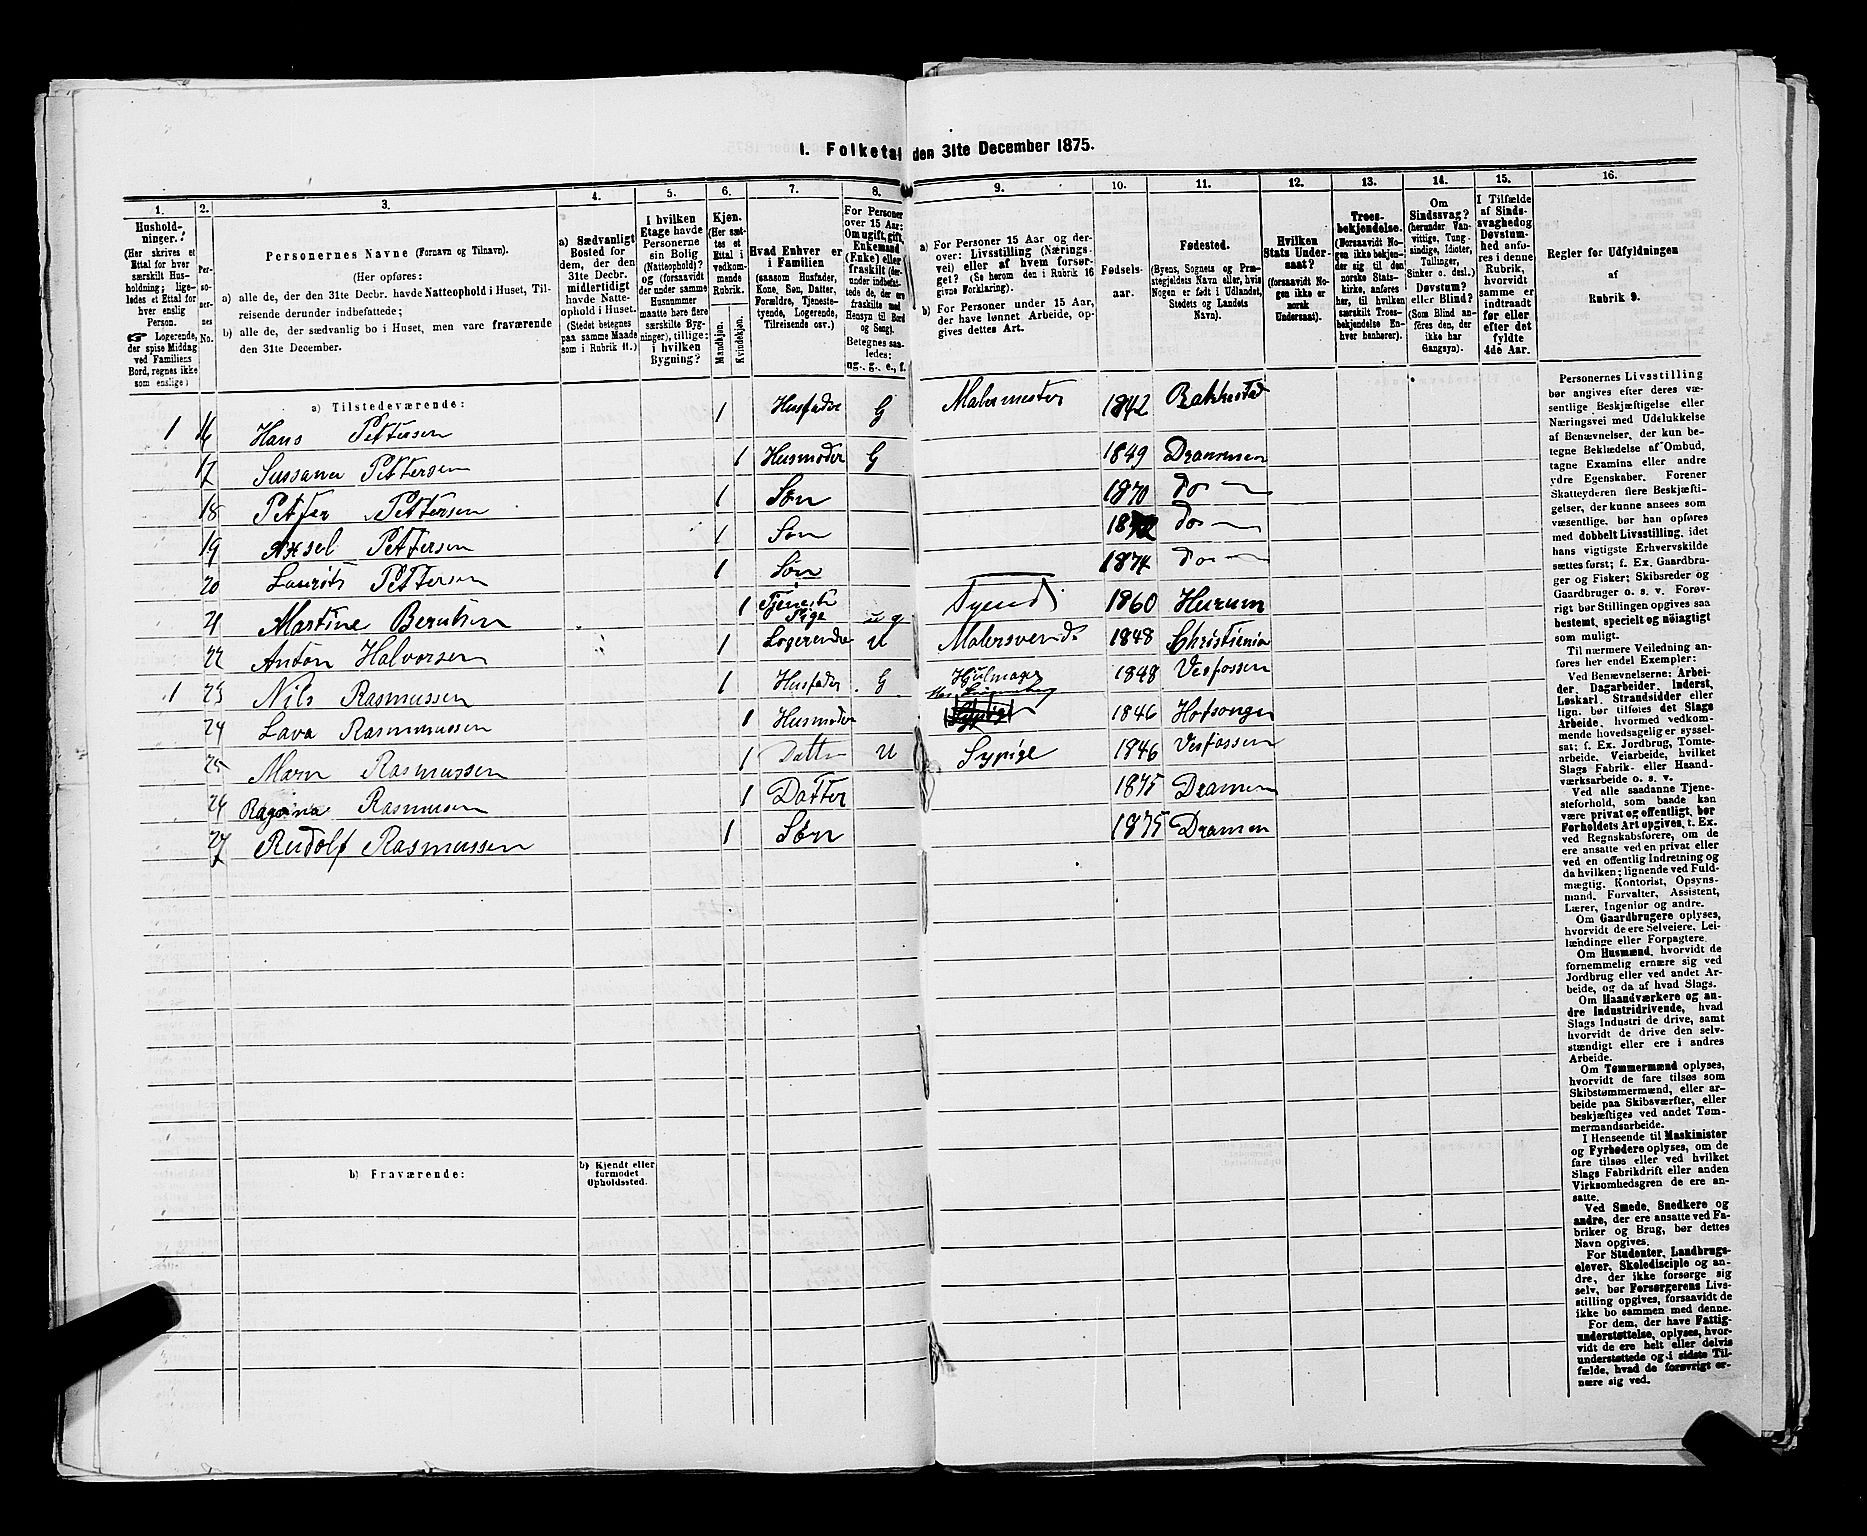 1. Folketal den 31te December 1875.
1. 2. 3. 4. 5. 6. 7. 8. 9. 10. 11. 12. 13. 14. 15. 16.
Hushold-
ninger.
(Her skrives et
Ettal for hver
særskilt Hus-
holdning; lige-
ledes et Ettal for
hver enslig
Person.
☞ Logerende,
der spise Middag
ved Familiens
Bord, regnes ikke
som enslige.)
Per-
so-
ner-
nes
No.
Personernes Navne (Fornavn og Tilnavn).
(Her opføres:
a) alle de, der den 31te Decbr. havde Natteophold i Huset, Til-
reisende derunder indbefattede;
b) alle de, der sædvanlig bo i Huset, men vare fraværende
den 31te December.
a) Sædvanligt
Bosted for
dem, der den
31te Decbr.
midlertidigt
havde Natte-
ophold i Huset.
(Stedet betegnes
paa samme Maade
som i Rubrik 11.)
I hvilken
Etage havde
Personerne
sin Bolig
(Natteophold)?
og (forsaavidt
der under samme
Husnummer
maatte høre flere
særskilte Byg-
ninger), tillige:
i hvilken
Bygning?
Kjøn.
(Her sæt-
tes et
Ettal i
vedkom-
mende
Rubrik.
Mandkjøn.
Kvindekjøn.
Hvad Enhver er
i Familien
(saasom Husfader,
Kone, Søn, Datter,
Forældre, Tjeneste-
tyende, Logerende,
Tilreisende osv.)
For Personer
over 15 Aar:
Om ugift, gift,
Enkemand
(Enke) eller
fraskilt (der-
under indbefat-
tede de, der ere
fraskilte med
Hensyn til Bord
og Seng).
Betegnes saa-
ledes:
ug., g., e., f.
a) For Personer 15 Aar og der-
over: Livsstilling (Nærings-
vei) eller af hvem forsør-
get? (Se herom den i Rubrik 16
givne Forklaring).
b) For Personer under 15 Aar,
der have lønnet Arbeide, op-
gives dettes Art.
Fødsels-
aar.
Fødested.
(Byens, Sognets og Præ-
stegjeldets Navn eller, hvis
Nogen er født i Udlandet,
Stedets og Landets
Navn).
Hvilken
Stats Under-
saat?
(forsaavidt No-
gen ikke er
norsk
Undersaat).
Troes-
bekjendelse.
(Forsaavidt No-
gen ikke bekjen-
der sig til den
norske Stats-
kirke, anføres
her, til hvilken
særskilt Troes-
bekjendelse En-
hver henhører).
Om
Sindssvag?
(herunder Van-
vittige, Tung-
sindige, Idioter,
Tullinger,
Sinker o. desl.)
Døvstum?
eller Blind?
(Som Blind an-
føres den, der
ikke har
Gangsyn).
I Tilfælde
af Sinds-
svaghed og
Døvstum-
hed anfø-
res i denne
Rubrik,
hvorvidt
samme er
indtraadt
før eller
efter det
fyldte
4de Aar.
Regler for Udfyldningen
af
Rubrik 9.
a) Tilstedeværende:
1 16 Hans Pettersen 1 Husfader G Malermester 1842 Bakkested
17 Sussane Pettersen 1 Husmoder G 1849 Drammen
18 Petter Pettersen 1 Søn 1870 do
19 Axsel Pettersen 1 Søn 1872 do
20 Laurits Pettersen 1 Søn 1874 do
21 Martine Berntsen 1 Tjeneste Pige ug Tyende 1860 Hurum
22 Anton Halvorsen 1 Logerende U Malersvend 1848 Christiania
1 23 Nils Rasmussen 1 Husfader G Hjulmager 1848 Vesfossen
24 Lava Rasmmussen 1 Husmoder 1846
25 Marn Rasmussen 1 Datter U Sypige 1846 Vesfossen
26 Ragna Rasmusen 1 Datter 1875 Dramen
27 Rudolf Rasmussen 1 Søn 1875 Dramen
b) Fraværende:
b) Kjendt eller
formodet
Opholdssted.
Personernes Livsstilling
bør angives efter deres væ-
sentlige Beskjæftigelse eller
Næringsvei med Udelukkelse
af Benævnelser, der kun be-
tegne Beklædelse af Ombud,
tagne Examina eller andre
ydre Egenskaber. Forener
Skatteyderen flere Beskjæfti-
gelser, der kunne ansees som
væsentlige, bør han opføres
med dobbelt Livsstilling, idet
hans vigtigste Erhvervskilde
sættes først; f. Ex. Gaardbru-
ger og Fisker; Skibsreder og
Gaardbruger o. s. v. Forøv-
rigt bør Stillingen opgives saa
bestemt, specielt og nøiagtigt
som muligt.
Til nærmere Veiledning an-
føres her endel Exempler:
Ved Benævnelserne: Arbei-
der, Dagarbeider, Inderst,
Løskarl, Strandsidder eller
lign. bør tilføies det Slags
Arbeide, hvormed vedkom-
mende hovedsagelig er syssel-
sat; f. Ex. Jordbrug, Tomte-
arbeide, Veiarbeide, hvilket
Slags Fabrik- eller Haand-
værksarbeide o. s. v.
Ved alle saadanne Tjene-
steforhold, som baade kan
være privat og offentligt, bør
Forholdets Art opgives, t. Ex.
ved Regnskabsførere, om de
ere ansatte ved en privat eller
ved en offentlig Indretning og
da hvilken; lignende ved Fuld-
mægtig, Kontorist, Opsyns-
mand, Forvalter, Assistent,
Lærer, Ingeniør og andre.
Om Gaardbrugere oplyses,
hvorvidt de ere Selveiere, Lei-
lændinge eller Forpagtere.
Om Husmænd, hvorvidt de
fornemmelig ernære sig ved
Jordbrug eller ved andet Ar-
beide, og da af hvad Slags.
Om Haandværkere og an-
dre Industridrivende, hvad
Slags Industri de drive, samt
hvorvidt de drive den selv-
stændigt eller ere i andres
Arbeide.
Om Tømmermænd oplyses,
hvorvidt de fare tilsøs som
Skibstømmermænd, eller ar-
beide paa Skibsværfter, eller
beskjæftiges ved andet Tøm-
mermandsarbeide.
I Henseende til Maskinister
og Fyrbødere oplyses, om de
fare tilsøs eller ved hvilket
Slags Fabrikdrift eller anden
Virksomhedsgren de ere an-
satte.
Ved Smede, Snedkere og
andre, der ere ansatte ved Fa-
briker og Brug, bør dettes
Navn opgives.
For Studenter, Landbrugs-
elever, Skoledisciple og an-
dre, der ikke forsørge sig
selv, bør Forsørgerens Livs-
stilling opgives, forsaavidt de
ikke bo sammen med denne.
For dem, der have Fattig-
understøttelse, oplyses, hvor-
vidt de ere helt eller delvis
understøttede og i sidste Til-
fælde, hvad de forøvrigt er-
nære sig ved.